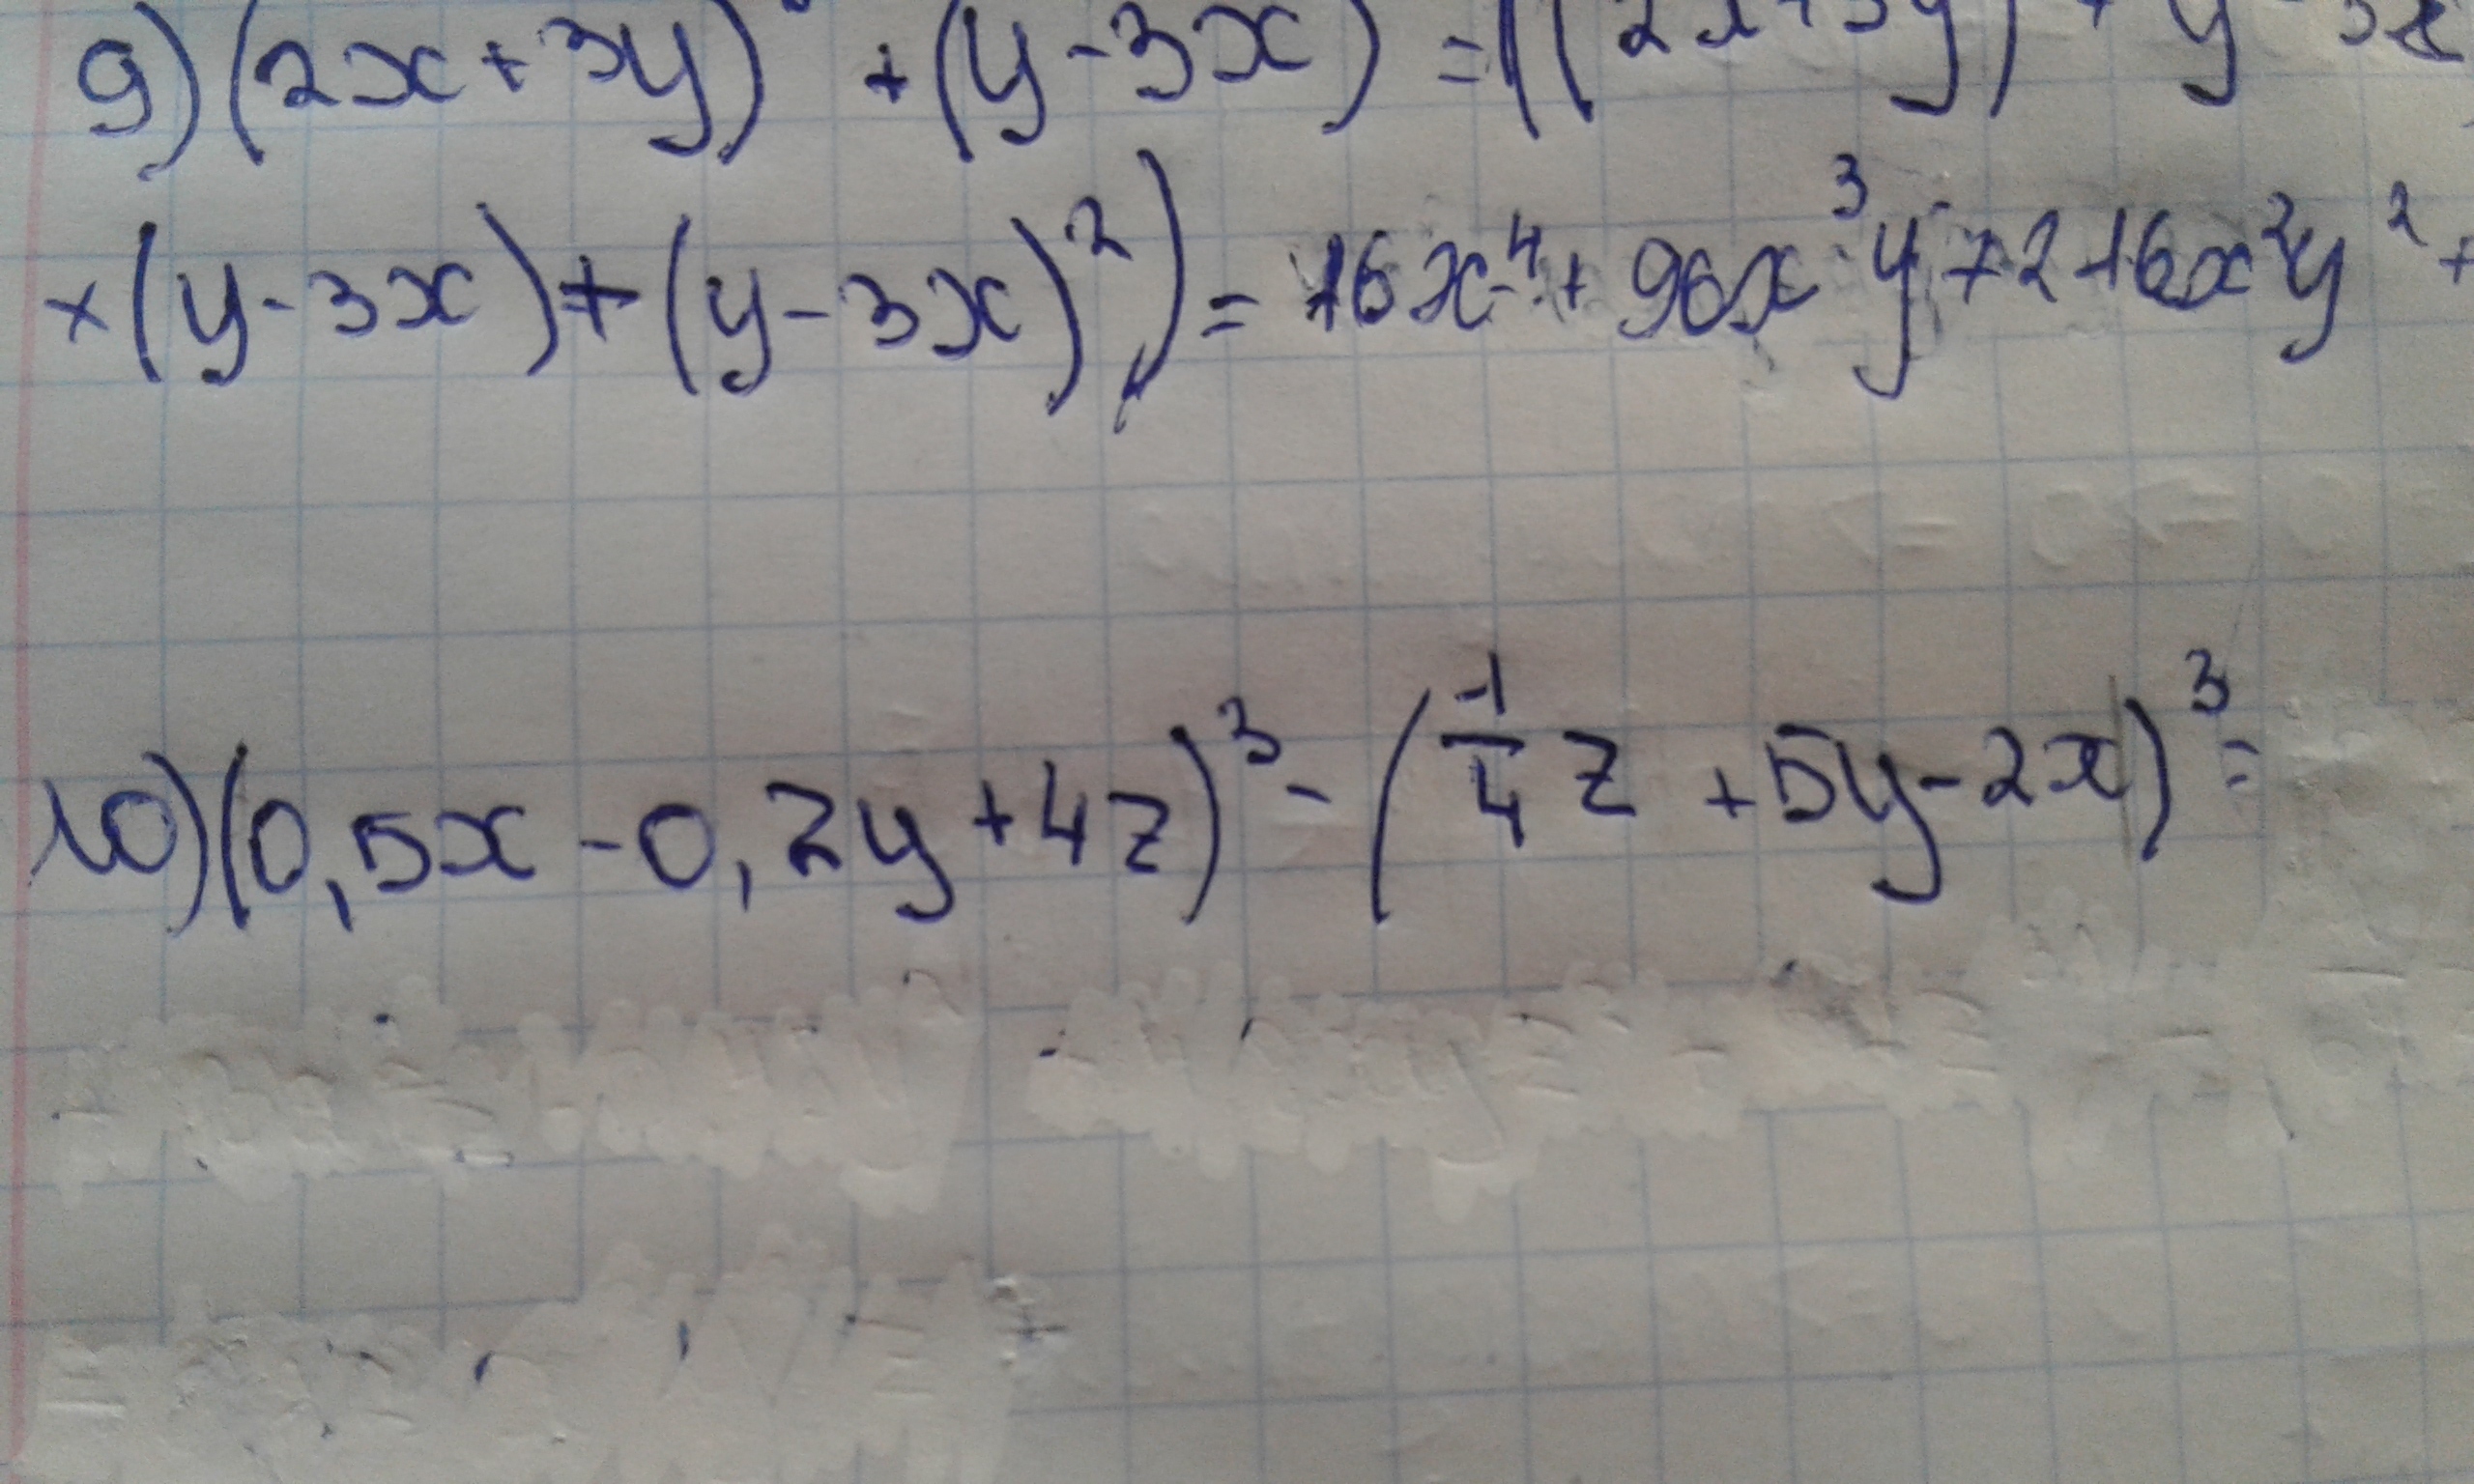 9) (2x+3y) + (y-3x) = ((2x+3y) + y-3x
×(y-3x)+(y-3x)²) = 16x⁴+96x³y+216x²y²+
10) (0,5x-0,2y+4z)³-(-1/4 z+5y-2x)³=